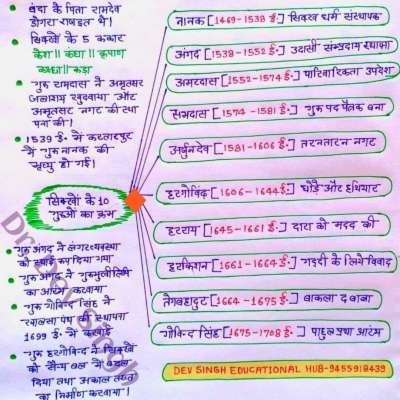 बंदा के पिता रामदेव
डोगरा राजपूत थे।
सिक्खों के 5 ककार
केश॥ कंघा॥ कृपाण
कच्छा॥ कड़ा
गुरु रामदास ने अमृतसर
जलाशय खुदवाया और
अमृतसर नगर की स्था
पना की।
1539 ई॰ में करतारपुर
में गुरु नानक की
मृत्यु हो गई।
सिक्खों के 10
गुरुओं का क्रम
गुरु अंगद ने लंगर व्यवस्था
को स्थाई कर दिया गया
गुरु अंगद ने गुरुमुखी लिपि
का आरंभ करवाया
गुरु गोविन्द सिंह ने
खालसा पंथ की स्थापना
1699 ई॰ में करवाई
गुरु हरगोविन्द ने सिक्खों
को सैन्य बल में बदल
दिया तथा अकाल तख्त
का निर्माण करवाया।
नानक [1469-1538 ई॰] सिक्ख धर्म संस्थापक
अंगद [1538-1552 ई॰] उदासी सम्प्रदाय स्थापना
अमरदास [1552-1574 ई॰] पारिवारिकता उपदेश
रामदास [1574-1581 ई॰] गुरु पद पैतृक बना
अर्जुन देव [1581-1606 ई॰] तरनतारन नगर
हरगोविंद [1606-1644 ई॰] घोड़े और हथियार
हरराय [1645-1661 ई॰] दारा को मदद की
हरकिशन [1661-1664 ई॰] गद्दी के लिये विवाद
तेगबहादुर [1664-1675 ई॰] बाकला द बाबा
गोविन्द सिंह [1675-1708 ई॰] पाहुल प्रथा आरंभ
DEV SINGH EDUCATIONAL HUB-9455919439